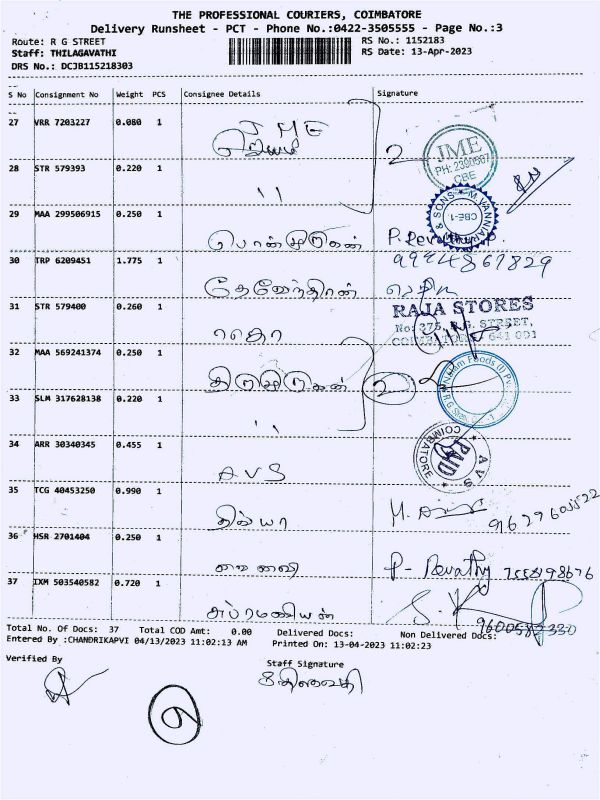 THE PROFESSIONAL COURIERS, COIMBATORE
Delivery Runsheet - PCT - Phone No.:0422-3505555 - Page No.:3
Route: R G STREET RS No.: 1152183
Staff: THILAGAVATHI RS Date: 13-Apr-2023
DRS No.: DCJB115218303
S No Consignment No Weight PCS Consignee Details Signature
27 VRR 7203227 0.080 1 JME
JME
PH: 2390567
CBE
28 STR 579393 0.220 1 "
& SONS * M. VANNIA
CBE-1
29 MAA 299506915 0.250 1 பொன்முருகன்
30 TRP 6209451 1.775 1 9944867829
31 STR 579400 0.260 1 ராஜா
RAJA STORES
No: 375, R.G. STREET,
COIMBATORE - 641 001
32 MAA 569241374 0.250 1 திருமுருகன் 2
Foods (I) Pv
33 SLM 317628138 0.220 1 "
34 ARR 30340345 0.455 1 AVS
COIMBATORE * A V S
PAID
35 TCG 40453250 0.990 1 திவ்யா
36 HSR 2701404 0.250 1 P- Revathy
37 IXM 503540582 0.720 1 சுப்ரமணியன் 9600582330
Total No. Of Docs: 37 Total COD Amt: 0.00 Delivered Docs: Non Delivered Docs:
Entered By :CHANDRIKAPVI 04/13/2023 11:02:13 AM Printed On: 13-04-2023 11:02:23
Verified By Staff Signature